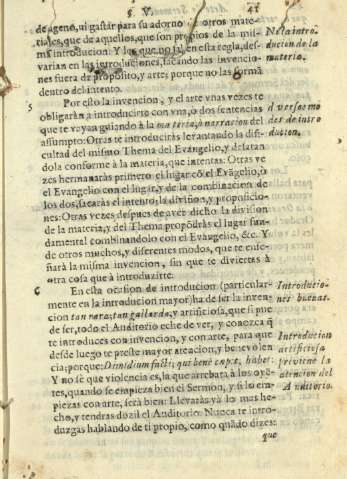 §. V. 41
de ageno, ni gastar para su adorno otros mate-
riales, que de aquellos, que son propios de la mis-
ma introducion: Y los que no ja, en esta regla, des-
varian en las introduciones, sacando las invencio-
nes fuera de proposito, y arte; porque no las forma
dentro del intento.
No la intro-
ducion de la
materia.
5 Por esto la invencion, y el arte vnas vezes te
obligaràn a introducirte con vna, o dos sentencias
que te vayan guiando à la materia, ò narracion del
assumpto: Otras te introduciràs levantando la difi-
cultad del mismo Thema del Evangelio, y desatan
dola conforme à la materia, que intentas. Otras ve
zes hermanaràs primero el lugar cõ el Evãgelio, ò
el Evangelio con el lugar, y de la combinacion de
los dos, sacaràs el intento, la division, y proposicio-
nes: Otras vezes despues de aver dicho la division
de la materia, y del Thema propõdràs el lugar fun-
damental combinandolo con el Evangelio, &c. Y
de otros muchos, y diferentes modos, que te ense-
ñarà la misma invencion, sin que te diviertas à
otra cosa que à introduzirte.
diversos mo
dos de intro
ducion.
6 En esta ocasion de introducion (particular-
mente en la introducion mayor) ha de ser la inven
cion tan rara, tan gallarda, y artificiosa, que si pue
de ser, todo el Auditorio eche de ver, y conozca q̃
te introduces con invencion, y con arte, para que
desde luego te preste mayor atencion, y benevolen
cia; porque: Dimidium facti, qui benè cœpit, habet:
Y no sè que violencia es, la que arrebata à los oyẽ-
tes, quando se empieza bien el Sermòn, y si lo em-
piezas con arte, serà bien: Llevaràs yà lo mas he-
cho, y tendràs dozil el Auditorio: Nunca te intro-
duzgas hablando de ti propio, como quãdo dizes:
que
Introducio-
nes buenas.
Introducion
artificiosa
previene la
atencion del
Auditorio.